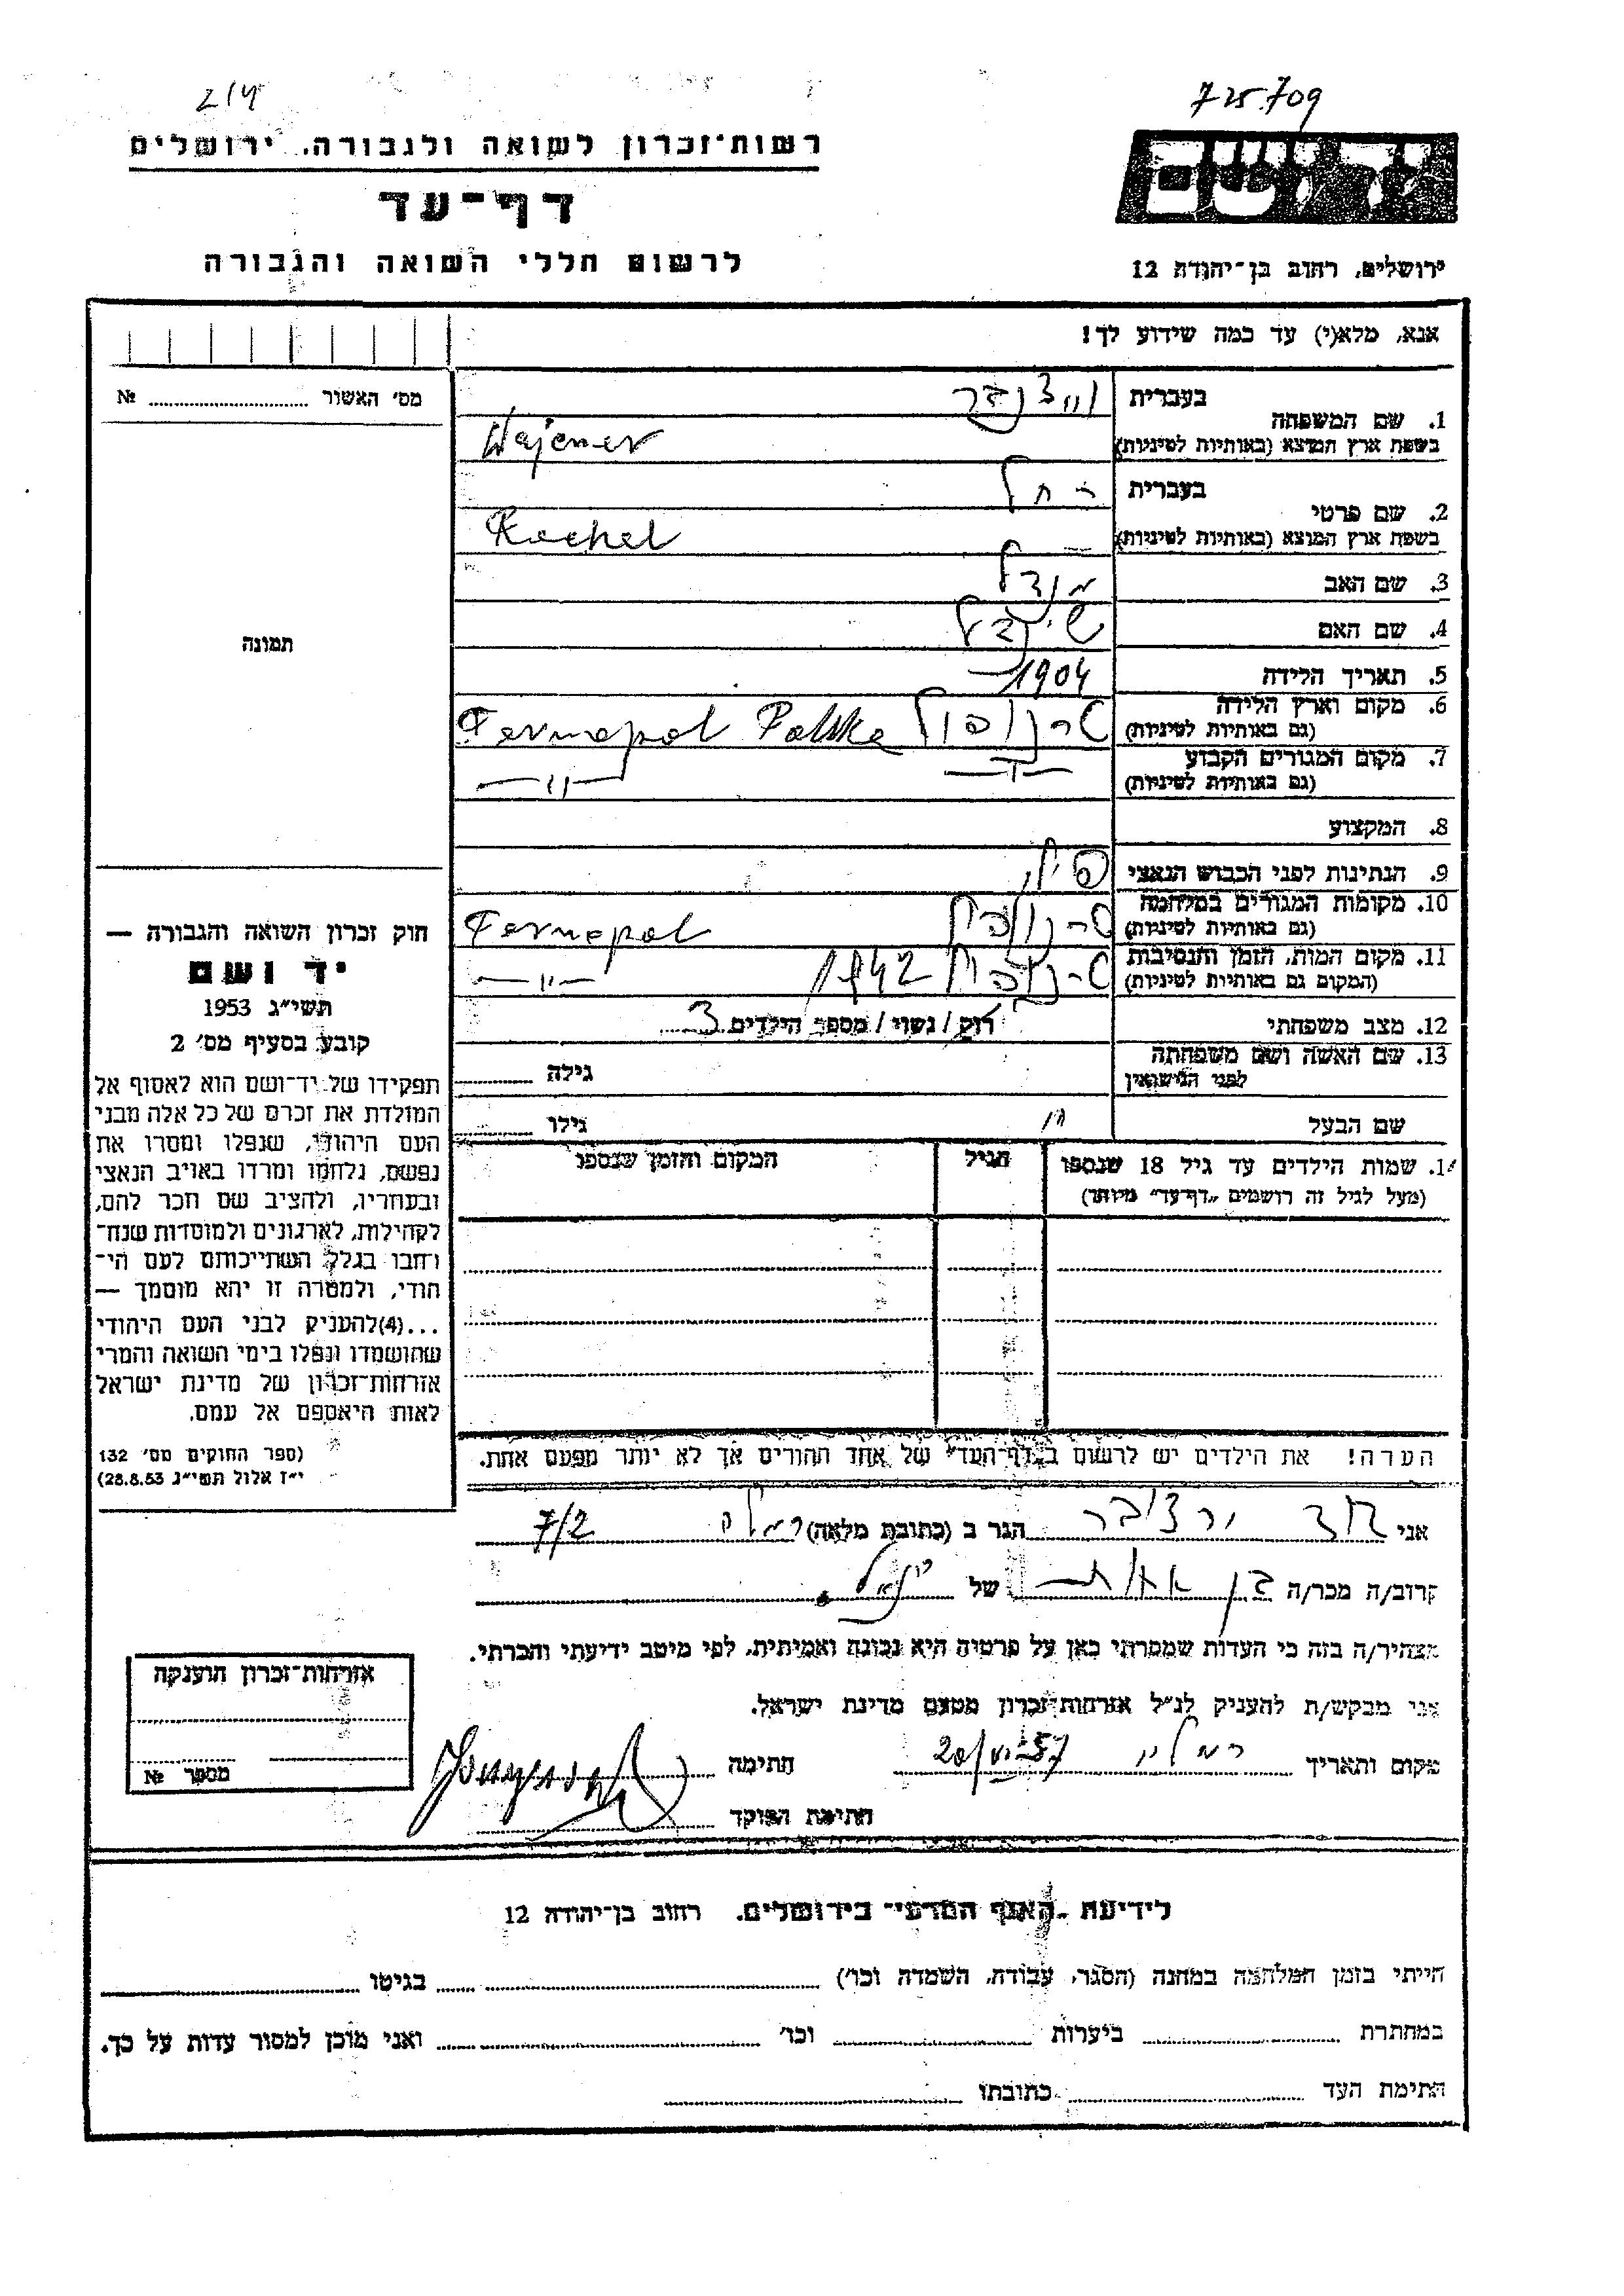 214
725709
רשות־זכרון לשואה ולגבורה, ירושלים
יד ושם
דף־עד
לרשום חללי השואה והגבורה
ירושלים, רחוב בן־יהודה 12
אנא, מלא(י) עד כמה שידוע לך!
מס׳ האשור № 
1. שם המשפחה
בעברית
בשפת ארץ המוצא (באותיות לטיניות) Wajcner
2. שם פרטי
בעברית רחל
בשפת ארץ המוצא (באותיות לטיניות) Rachel
3. שם האב
4. שם האם
5. תאריך הלידה 1904
6. מקום וארץ הלידה (גם באותיות לטיניות) טרנופול Tarnopol Polska
7. מקום המגורים הקבוע (גם באותיות לטיניות) —〃— —〃—
8. המקצוע
9. הנתינות לפני הכבוש הנאצי
10. מקומות המגורים במלחמה (גם באותיות לטיניות) טרנופול Tarnopol
11. מקום המות, הזמן והנסיבות (המקום גם באותיות לטיניות) טרנופול 1942 —〃—
12. מצב משפחתי רוק / נשוי / מספר הילדים 3
13. שם האשה ושם משפחתה לפני הנישואין גילה
שם הבעל גילו
14. שמות הילדים עד גיל 18 שנספו
(מעל לגיל זה רושמים „דף־עד״ מיוחד)
הגיל
המקום והזמן שנספו
תמונה
חוק זכרון השואה והגבורה —
יד ושם
תשי״ג 1953
קובע בסעיף מס׳ 2
תפקידו של יד־ושם הוא לאסוף אל
המולדת את זכרם של כל אלה מבני
העם היהודי, שנפלו ומסרו את
נפשם, נלחמו ומרדו באויב הנאצי
ובעוזריו, ולהציב שם וזכר להם,
לקהילות, לארגונים ולמוסדות שנח־
רבו בגלל השתייכותם לעם הי־
הודי, ולמטרה זו יהא מוסמך —
...(4)להעניק לבני העם היהודי
שהושמדו ונפלו בימי השואה והמרי
אזרחות־זכרון של מדינת ישראל
לאות היאספם אל עמם.
(ספר החוקים מס׳ 132
י״ז אלול תשי״ג 28.8.53)
הערה! את הילדים יש לרשום ב„דף־העד״ של אחד ההורים אך לא יותר מפעם אחת.
אני הגר ב (כתובת מלאה) רמלה 7/2
קרוב/ה מכר/ה של
מצהיר/ה בזה כי העדות שמסרתי כאן על פרטיה היא נכונה ואמיתית, לפי מיטב ידיעתי והכרתי.
אני מבקש/ת להעניק לנ״ל אזרחות־זכרון מטעם מדינת ישראל.
מקום ותאריך חתימה
חתימת הפוקד
אזרחות־זכרון הוענקה
מספר №
לידיעת „האגף המדעי״ בירושלים, רחוב בן־יהודה 12
הייתי בזמן המלחמה במחנה (הסגר, עבודה, השמדה וכו׳) בגיטו
במחתרת ביערות וכו׳ ואני מוכן למסור עדות על כך.
חתימת העד כתובתו